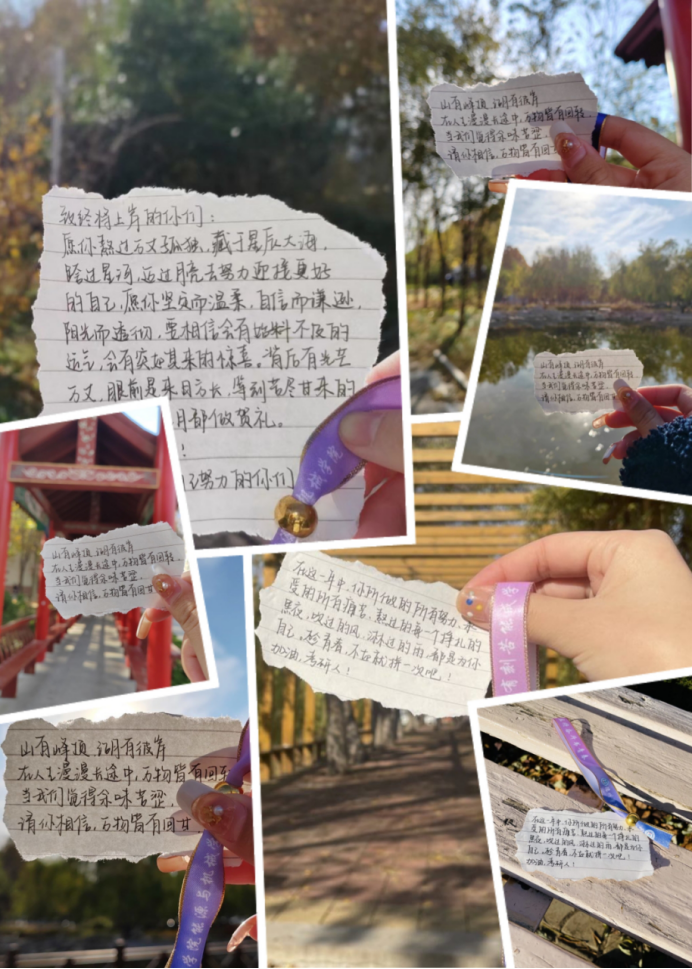 致终将上岸的你们：
愿你熬过万丈孤独，藏于星辰大海，
跨过星河，迈过月亮去努力迎接更好
的自己，愿你坚定而温柔，自信而谦逊，
阳光而透彻，要相信会有始料不及的
运气，会有突如其来的惊喜。背后有光芒
万丈，眼前是来日方长，等到苦尽甘来的
月都做贺礼。
！
努力的你们
山有峰顶 湖有彼岸
在人生漫漫长途中，万物皆有回转
当我们觉得余味苦涩，
请你相信，万物皆有回甘
山有峰顶 湖有彼岸
在人生漫漫长途中，万物皆有回转
当我们觉得余味苦涩，
请你相信，万物皆有回甘
山有峰顶 湖有彼岸
在人生漫漫长途中，万物皆有回转，
当我们觉得余味苦涩，
请你相信，万物皆有回甘
在这一年中，你所做的所有努力，承
受的所有痛苦，熬过的每一个挣扎的
黑夜，吹过的风，淋过的雨，都是为你
自己，趁青春，不在就拼一次吧！
加油，考研人！
山有峰顶 湖有彼岸
在人生漫漫长途中，万物皆有回转
当我们觉得余味苦涩，
请你相信，万物皆有回甘
学院能源与机械
在这一年中，你所做的所有努力，承
受的所有痛苦，熬过的每一个挣扎的
黑夜，吹过的风，淋过的雨，都是为你
自己，趁青春，不在就拼一次吧！
加油，考研人！